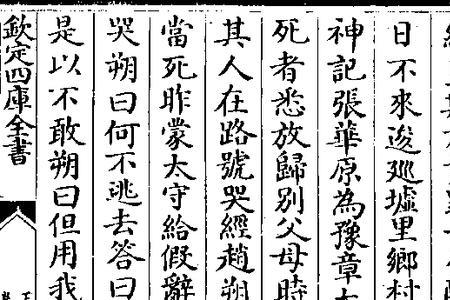 日不來逡廵墟里鄉村
神記張華原為豫章太
死者悉放歸別父母時
其人在路號哭經趙朔
當死昨蒙太守給假辭
哭朔曰何不逃去答曰
是以不敢朔曰但用我
欽定四庫全書